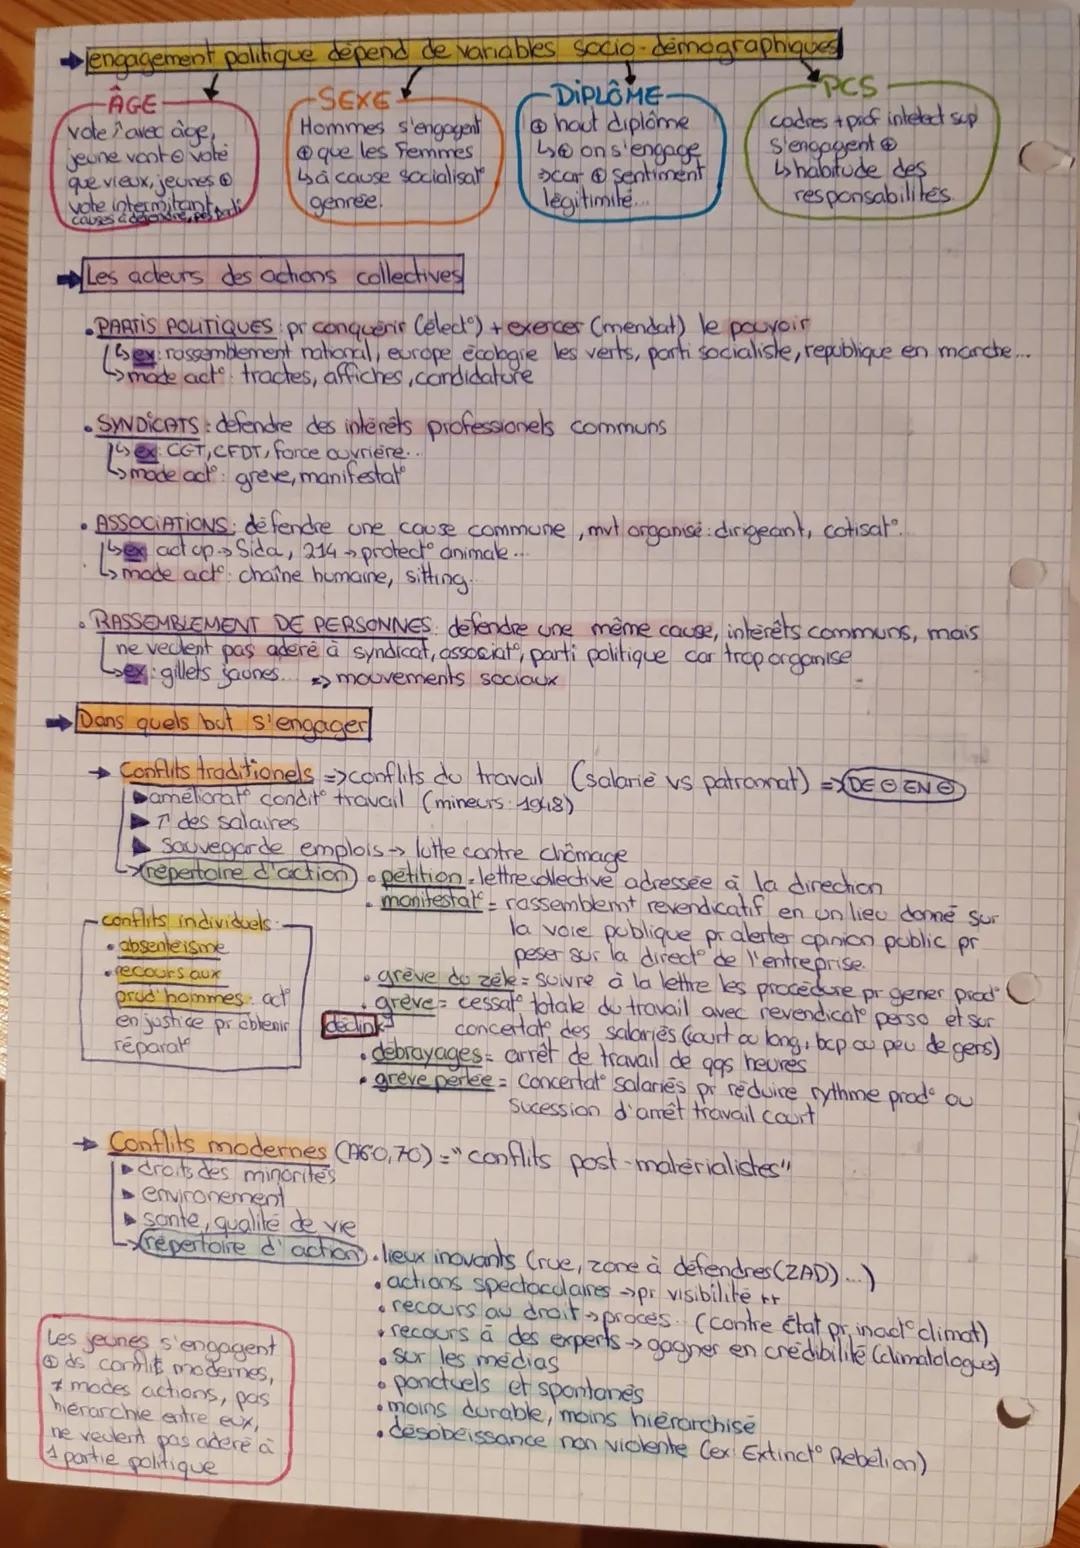 → engagement politique dépend de variables socio-démographiques
ÂGE
vote ↑ avec âge,
jeune vont ⊖ voté
que vieux, jeunes ⊕
vote intermitant,
causes à défendre, pas parti
SEXE
Hommes s'engagent
⊕ que les Femmes
↳ à cause socialisat°
genrée.
DIPLÔME
⊕ haut diplôme
↳ ⊕ on s'engage
⇒ car ⊕ sentiment
légitimité...
PCS
cadres + prof intelect sup
s'engagent ⊕
↳ habitude des
responsabilités
→ Les acteurs des actions collectives
• PARTIS POLITIQUES : pr conquérir (élect°) + exercer (mandat) le pouvoir
↳ ex: rassemblement national, europe écologie les verts, parti socialiste, republique en marche...
↳ mode act° : tractes, affiches, candidature
• SYNDICATS : défendre des intérêts professionels communs
↳ ex: CGT, CFDT, force ouvrière...
↳ mode act° : grève, manifestat°
• ASSOCIATIONS : défendre une cause commune, mvt organisé : dirigeant, cotisat°.
↳ ex act up → Sida, 214 → protect° animale...
↳ mode act° : chaîne humaine, sitting...
• RASSEMBLEMENT DE PERSONNES : défendre une même cause, intérêts communs, mais
ne veulent pas adéré à syndicat, associat°, parti politique car trop organise
↳ ex : gillets jaunes... ⇒ mouvements sociaux
→ Dans quels but s'engager
→ Conflits traditionels => conflits du travail (salarié vs patronnat) => DE ⊖ EN ⊖
▶ améliorat° condit° travail (mineurs : 1948)
▶ ↑ des salaires
▶ Sauvegarde emplois → lutte contre chômage
↳ répertoire d'action • pétition = lettre collective adressée à la direction
• manifestat° = rassemblemt revendicatif en un lieu donné sur
la voie publique pr alerter opinion public pr
peser sur la direct° de l'entreprise.
conflits individuels
• absentéisme
• recours aux
prud'hommes : act°
en justice pr obtenir
réparat°
• grève du zèle = suivre à la lettre les procédure pr gener prod°
• grève = cessat° totale du travail avec revendicat° perso et sur
déclin
concertat° des salariés (court ou long, bcp ou peu de gens)
• débrayages = arrêt de travail de qqs heures
• grève perlée = Concertat° salariés pr réduire rythme prod° ou
sucession d'arrêt travail court
→ Conflits modernes (A60,70) = "conflits post-matérialistes"
▶ droits des minorités
▶ environement
▶ santé, qualité de vie
↳ répertoire d'action • lieux inovants (rue, zone à défendres (ZAD)...)
• actions spectaculaires → pr visibilité ++
• recours au droit → procès. (contre État pr inact° climat)
• recours à des experts → gagner en crédibilité (climatologues)
• sur les médias
• ponctuels et spontanés
• moins durable, moins hiérarchisé
• désobeissance non violente (ex: Extinct° Rebelion)
Les jeunes s'engagent
⊕ ds conflit modernes,
≠ modes actions, pas
hiérarchie entre eux,
ne veulent pas adéré à
1 partie politique